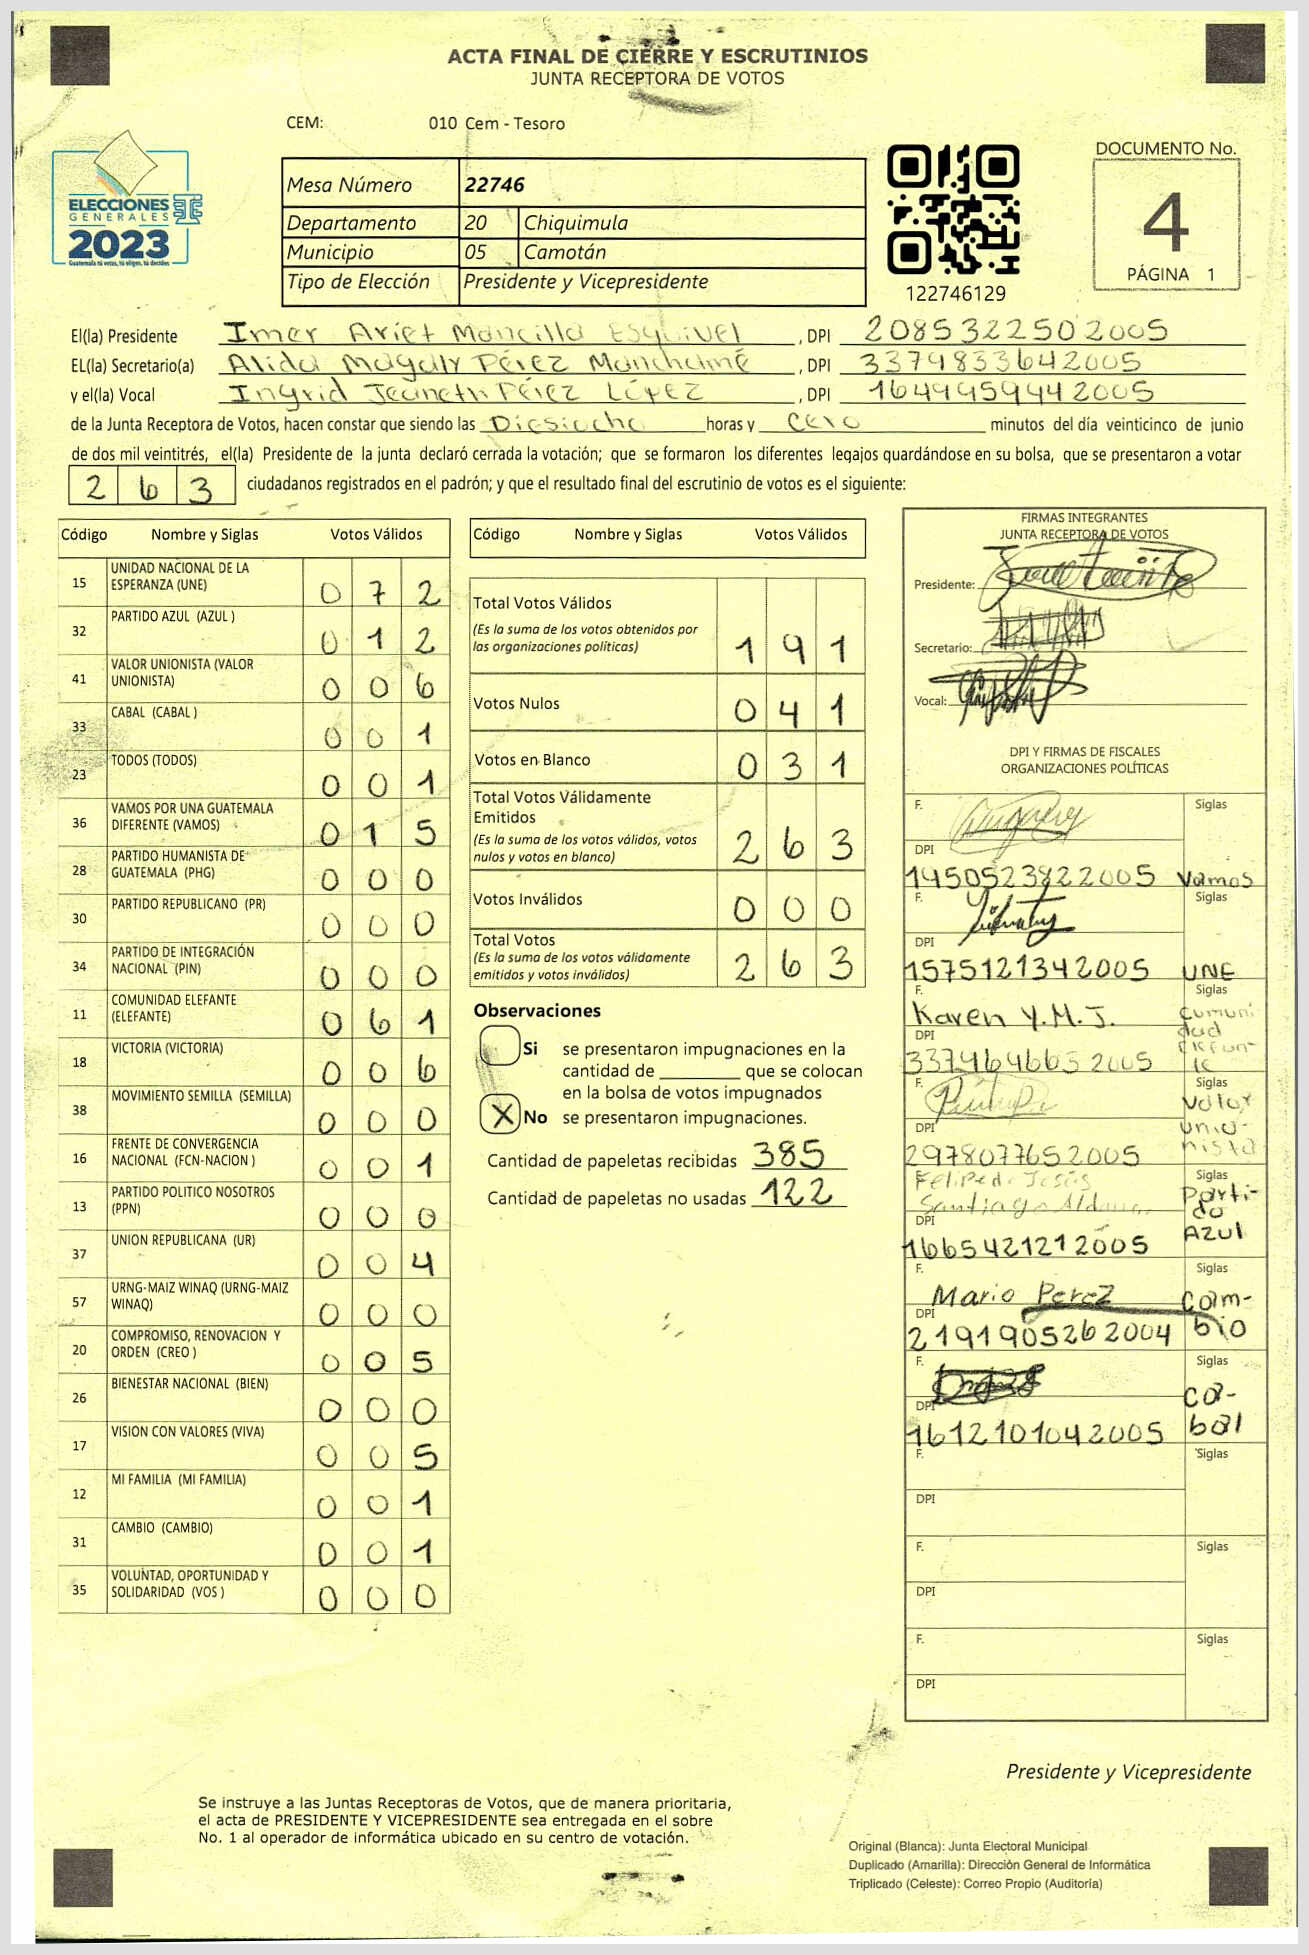 ACTA FINAL DE CIERRE Y ESCRUTINIOS
JUNTA RECEPTORA DE VOTOS
CEM: 010 Cem - Tesoro
ELECCIONES
GENERALES
2023
Guatemala tú votas, tú eliges, tú decides
Mesa Número 22746
Departamento 20 Chiquimula
Municipio 05 Camotán
Tipo de Elección Presidente y Vicepresidente
122746129
DOCUMENTO No.
4
PÁGINA 1
El(la) Presidente Imer Ariet Mancilla Esquivel, DPI 2085322502005
EL(la) Secretario(a) Alida Magaly Pérez Manchamé, DPI 3379833642005
y el(la) Vocal Ingrid Jeaneth Pérez López, DPI 1649959442005
de la Junta Receptora de Votos, hacen constar que siendo las Diesiocho horas y Cero minutos del día veinticinco de junio
de dos mil veintitrés, el(la) Presidente de la junta declaró cerrada la votación; que se formaron los diferentes legajos guardándose en su bolsa, que se presentaron a votar
263 ciudadanos registrados en el padrón; y que el resultado final del escrutinio de votos es el siguiente:
Código Nombre y Siglas Votos Válidos
15 UNIDAD NACIONAL DE LA
ESPERANZA (UNE) 072
32 PARTIDO AZUL (AZUL ) 012
41 VALOR UNIONISTA (VALOR
UNIONISTA) 006
33 CABAL (CABAL ) 001
23 TODOS (TODOS) 001
36 VAMOS POR UNA GUATEMALA
DIFERENTE (VAMOS) 015
28 PARTIDO HUMANISTA DE
GUATEMALA (PHG) 000
30 PARTIDO REPUBLICANO (PR) 000
34 PARTIDO DE INTEGRACIÓN
NACIONAL (PIN) 000
11 COMUNIDAD ELEFANTE
(ELEFANTE) 061
18 VICTORIA (VICTORIA) 006
38 MOVIMIENTO SEMILLA (SEMILLA) 000
16 FRENTE DE CONVERGENCIA
NACIONAL (FCN-NACION ) 001
13 PARTIDO POLITICO NOSOTROS
(PPN) 000
37 UNION REPUBLICANA (UR) 004
57 URNG-MAIZ WINAQ (URNG-MAIZ
WINAQ) 000
20 COMPROMISO, RENOVACION Y
ORDEN (CREO ) 005
26 BIENESTAR NACIONAL (BIEN) 000
17 VISION CON VALORES (VIVA) 005
12 MI FAMILIA (MI FAMILIA) 001
31 CAMBIO (CAMBIO) 001
35 VOLUNTAD, OPORTUNIDAD Y
SOLIDARIDAD (VOS ) 000
Código Nombre y Siglas Votos Válidos
Total Votos Válidos
(Es la suma de los votos obtenidos por
las organizaciones políticas) 191
Votos Nulos 041
Votos en Blanco 031
Total Votos Válidamente
Emitidos
(Es la suma de los votos válidos, votos
nulos y votos en blanco) 263
Votos Inválidos 000
Total Votos
(Es la suma de los votos válidamente
emitidos y votos inválidos) 263
Observaciones
Si se presentaron impugnaciones en la
cantidad de ________ que se colocan
en la bolsa de votos impugnados
X No se presentaron impugnaciones.
Cantidad de papeletas recibidas 385
Cantidad de papeletas no usadas 122
FIRMAS INTEGRANTES
JUNTA RECEPTORA DE VOTOS
Presidente:
Secretario:
Vocal:
DPI Y FIRMAS DE FISCALES
ORGANIZACIONES POLÍTICAS
F. Siglas
DPI
1450523822005 Vamos
F. Siglas
DPI
1575121342005 UNE
F. Siglas
Karen Y.M.J. Comuni
DPI dad
3374646652005 Elefan-
te
F. Siglas
Valor
DPI Unio-
2978077652005 nista
F. Siglas
Felipe de Jesús Parti-
Santiago do
DPI
1665421212005 Azul
F. Siglas
Mario Perez Cam-
DPI
2191905262004 bio
F. Siglas
Ca-
DPI
1612101042005 bal
F. Siglas
DPI
F. Siglas
DPI
F. Siglas
DPI
Presidente y Vicepresidente
Se instruye a las Juntas Receptoras de Votos, que de manera prioritaria,
el acta de PRESIDENTE Y VICEPRESIDENTE sea entregada en el sobre
No. 1 al operador de informática ubicado en su centro de votación.
Original (Blanca): Junta Electoral Municipal
Duplicado (Amarilla): Dirección General de Informática
Triplicado (Celeste): Correo Propio (Auditoría)